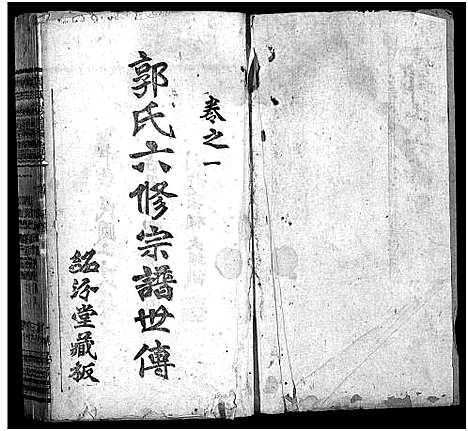 卷之一
郭氏六修宗譜世傳
紹汾堂藏板